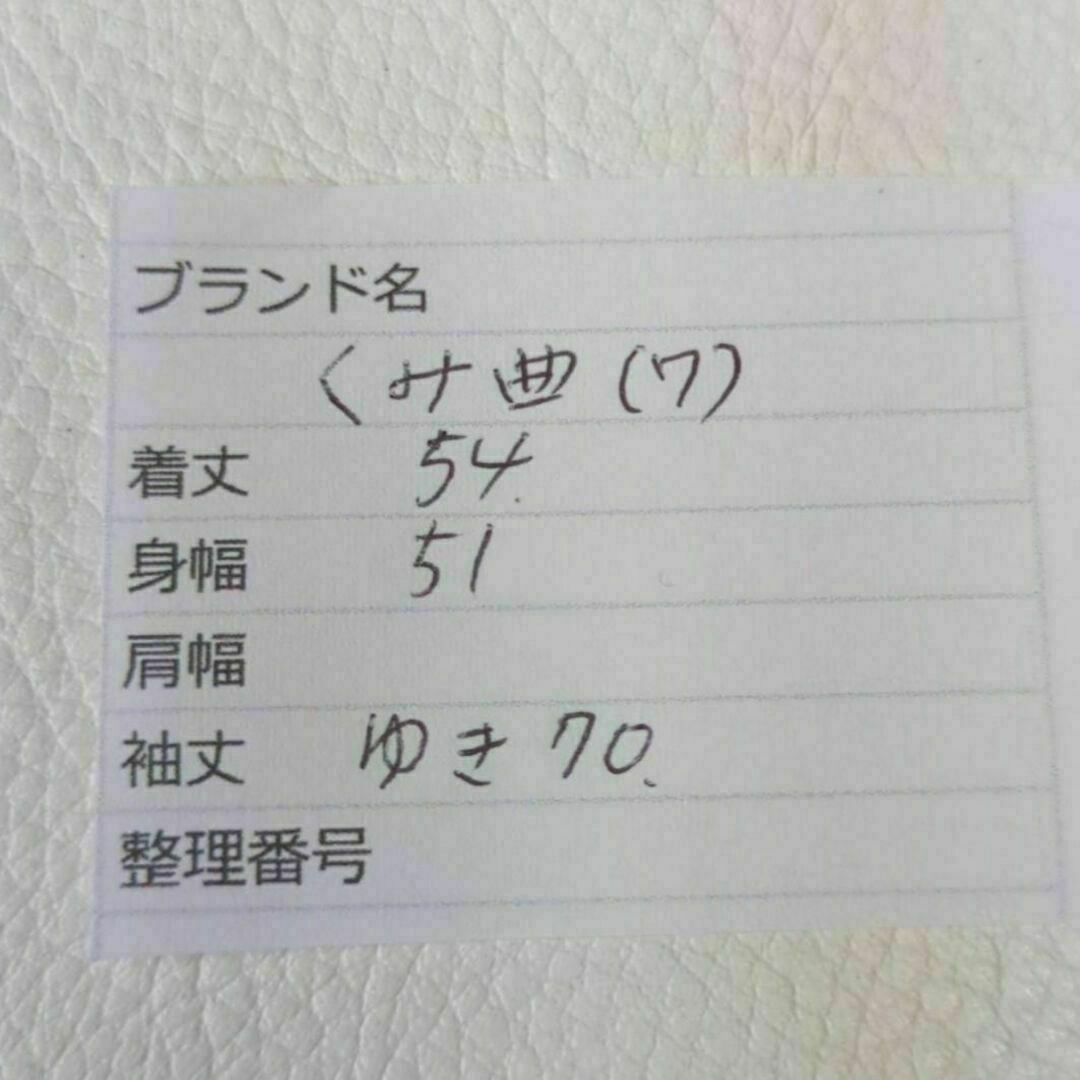 ブランド名
くみ曲(7)
着丈 54.
身幅 51
肩幅
袖丈 ゆき 70.
整理番号